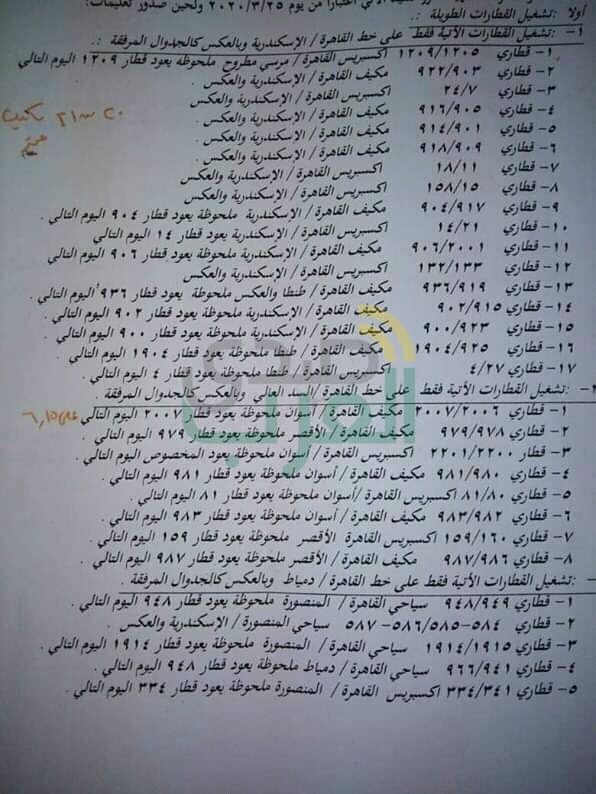 اعتبارا من يوم ٢٠٢٠/٣/٢٥ ولحين صدور تعليمات:
أولا :تشغيل القطارات الطويلة :.
١- :تشغيل القطارات الآتية فقط على خط القاهرة / الإسكندرية وبالعكس كالجدوال المرفقة :.
١- قطاري ١٢٠٩/١٢٠٥ اكسبريس القاهرة / مرسي مطروح ملحوظة يعود قطار ١٢٠٩ اليوم التالي
٢- قطاري ٩٢٢/٩٠٣ مكيف القاهرة / الإسكندرية والعكس .
٣- قطاري ٢٤/٧ اكسبريس القاهرة / الإسكندرية والعكس
٤- قطاري ٩١٦/٩٠٥ مكيف القاهرة / الإسكندرية والعكس .
٥- قطاري ٩١٤/٩٠١ مكيف القاهرة / الإسكندرية والعكس .
٦- قطاري ٩١٨/٩٠٩ مكيف القاهرة / الإسكندرية والعكس .
٧- قطاري ١٨/١١ اكسبريس القاهرة / الإسكندرية والعكس
٨- قطاري ١٥٨/١٥ اكسبريس القاهرة / الإسكندرية والعكس
٩- قطاري ٩٠٤/٩١٧ مكيف القاهرة / الإسكندرية ملحوظة يعود قطار ٩٠٤ اليوم التالي .
١٠- قطاري ١٤/٢١ اكسبريس القاهرة / الإسكندرية ملحوظة يعود قطار ١٤ اليوم التالي
١١- قطاري ٩٠٦/٢٠٠١ مكيف القاهرة / الإسكندرية ملحوظة يعود قطار ٩٠٦ اليوم التالي .
١٢- قطاري ١٣٢/١٣٣ اكسبريس القاهرة / الإسكندرية والعكس
١٣- قطاري ٩٣٦/٩١٩ مكيف القاهرة / طنطا والعكس ملحوظة يعود قطار ٩٣٦ اليوم التالي .
١٤- قطاري ٩٠٢/٩١٥ مكيف القاهرة / الإسكندرية ملحوظة يعود قطار ٩٠٢ اليوم التالي .
١٥- قطاري ٩٠٠/٩٢٣ مكيف القاهرة / الإسكندرية ملحوظة يعود قطار ٩٠٠ اليوم التالي .
١٦- قطاري ١٩٠٤/٩٢٥ مكيف القاهرة / طنطا ملحوظة يعود قطار ١٩٠٤ اليوم التالي .
١٧- قطاري ٤/٢٧ اكسبريس القاهرة / طنطا ملحوظة يعود قطار ٤ اليوم التالي .
:تشغيل القطارات الآتية فقط على خط القاهرة / السد العالي وبالعكس كالجدوال المرفقة .
١- قطاري ٢٠٠٧/٢٠٠٦ مكيف القاهرة / أسوان ملحوظة يعود قطار ٢٠٠٧ اليوم التالي
٢- قطاري ٩٧٩/٩٧٨ مكيف القاهرة / الأقصر ملحوظة يعود قطار ٩٧٩ اليوم التالي .
٣- قطار ٢٢٠١/٢٢٠٠ اكسبريس القاهرة / أسوان ملحوظة يعود المخصوص اليوم التالي .
٤- قطاري ٩٨١/٩٨٠ مكيف القاهرة / أسوان ملحوظة يعود قطار ٩٨١ اليوم التالي .
٥- قطاري ٨١/٨٠ اكسبريس القاهرة /أسوان ملحوظة يعود قطار ٨١ اليوم التالي .
٦- قطاري ٩٨٣/٩٨٢ مكيف القاهرة / أسوان ملحوظة يعود قطار ٩٨٣ اليوم التالي .
٧- قطاري ١٥٩/١٦٠ اكسبريس القاهرة الأقصر ملحوظة يعود قطار ١٥٩ اليوم التالي .
٨- قطاري ٩٨٧/٩٨٦ مكيف القاهرة / الأقصر ملحوظة يعود قطار ٩٨٧ اليوم التالي .
:تشغيل القطارات الآتية فقط على خط القاهرة / دمياط وبالعكس كالجدوال المرفقة .
١- قطاري ٩٤٨/٩٤٩ سياحي القاهرة / المنصورة ملحوظة يعود قطار ٩٤٨ اليوم التالي .
٢- قطاري ٥٨٤- ٥٨٦/٥٨٥- ٥٨٧ سياحي المنصورة / الإسكندرية والعكس .
٣- قطاري ١٩١٤/١٩١٥ سياحي القاهرة / المنصورة ملحوظة يعود قطار ١٩١٤ اليوم التالي .
٤- قطاري ٩٦٦/٩٤١ سياحي القاهرة / دمياط ملحوظة يعود قطار ٩٤٨ اليوم التالي .
٥- قطاري ٣٣٤/٣٤١ اكسبريس القاهرة / المنصورة ملحوظة يعود قطار ٣٣٤ اليوم التالي .